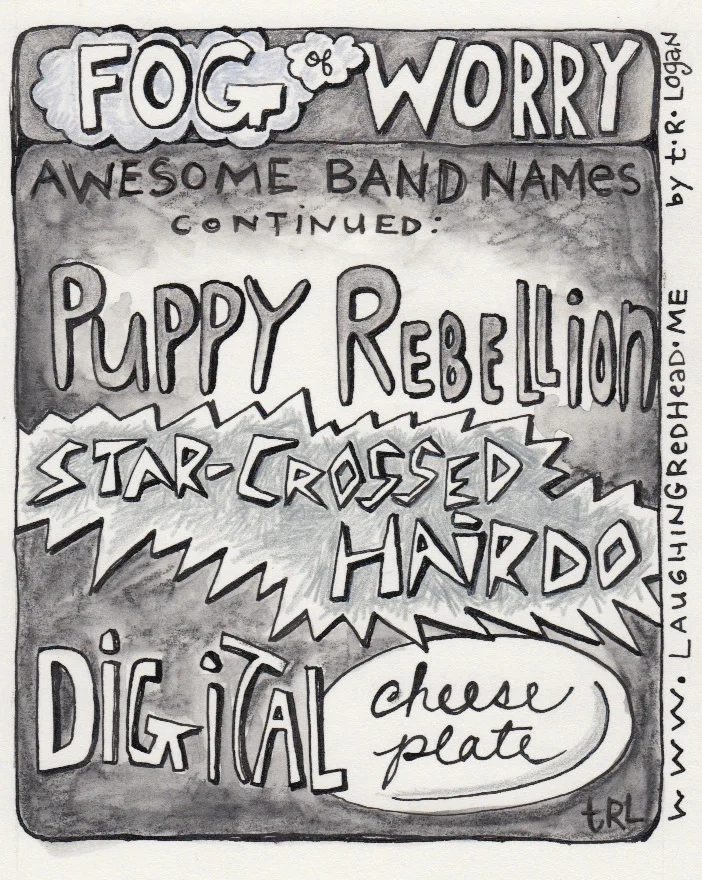 FOG of WORRY
AWESOME BAND NAMes
CONTiNUED:
PuPPY REBELLion
STAR-CROSSED
HAiRDO
DiGiTAL cheese
plate
tRL
www.LAUGHINGREDHeaD.ME by t.R.LOgaN